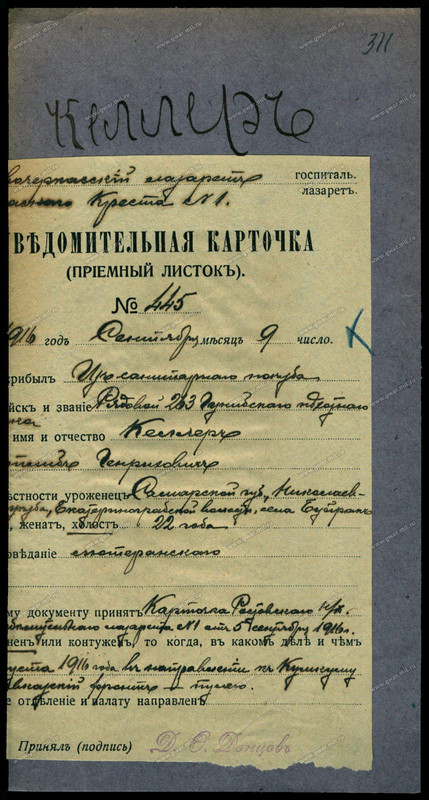 311
Келлеръ
вочеркасскiй лазаретъ госпиталь.
аснаго Креста №1. лазаретъ.
УВѢДОМИТЕЛЬНАЯ КАРТОЧКА
(ПРІЕМНЫЙ ЛИСТОКЪ).
№ 445
1916 годъ Сентябрь мѣсяцъ 9 число.
прибылъ Изъ санитарнаго поѣзда
йскъ и званіе Рядовой 263 Гунибскаго пѣхотнаго
имя и отчество Келлеръ
Генриховичъ
ѣстности уроженецъ Самарской губ., Николаев-
уѣзда, Екатериноградской волости, села
, женатъ, холостъ 22 года
овѣданіе лютеранскаго
му документу принятъ Карточка Ростовскаго н/Д.
лазарета №1 отъ 5 сентября 1916 г.
ненъ или контуженъ, то когда, въ какомъ дѣлѣ и чѣмъ
густа 1916 года въ направленіи къ
вказскій фронтъ - пулею.
е отдѣленіе и палату направленъ
Принялъ (подпись) Д. О. Донцовъ